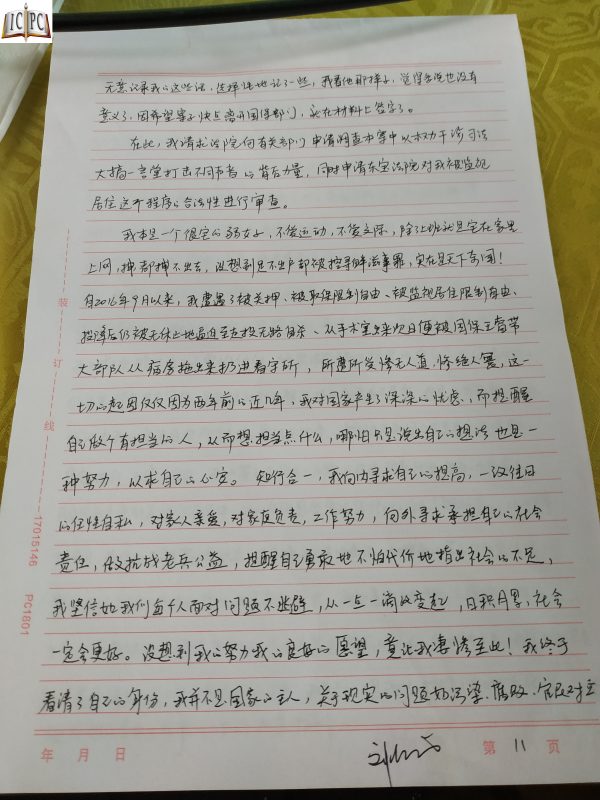 ICPC
无意记录我的这些话,选择性地记了一些,我看他那样子,觉得再说也没有
意义了,因希望案子快点离开国保部门,就在材料上签字了。
在此,我请求法院向有关部门申请调查本案中以权力干涉司法
大搞一言堂打击不同声音的背后力量,同时申请东宝法院对我被监视
居住这个程序的合法性进行审查。
我本是一个很宅的弱女子,不爱运动,不爱交际,除上班就是宅在家里
上网,拽都拽不出去,没想到足不出户都被控寻衅滋事罪,实在是天下奇闻!
自2016年9月以来,我遭遇了被关押、被取保限制自由、被监视居住限制自由、
投递后仍被无休止地逼迫至走投无路自杀、从手术室出来次日便被国保王警带
大部队从病房拖出来扔进看守所,所遭所受惨无人道,惨绝人寰,这一
切的起因仅仅因为两年前的近几年,我对国家产生了深深的忧虑,而提醒
自己做个有担当的人,从而想担当点什么,哪怕只是说出自己的想法也是一
种努力,以求自己的心安。知行合一,我向内寻求自己的提高,一改往日
的任性自私,对家人亲爱,对家庭负责,工作努力,向外寻求承担自己的社会
责任,做抗战老兵公益,提醒自己勇敢地不怕代价地指出社会的不足,
我坚信如我们每个人面对问题不逃避,从一点一滴改变起,日积月累,社会
一定会更好。没想到我的努力我的良好的愿望,竟让我凄惨至此!我终于
看清了自己的身份,我并不是国家的主人,关于现实的问题如污染、腐败、官民对立
装
订
线
17015146 PC1801
年 月 日
第 11 页